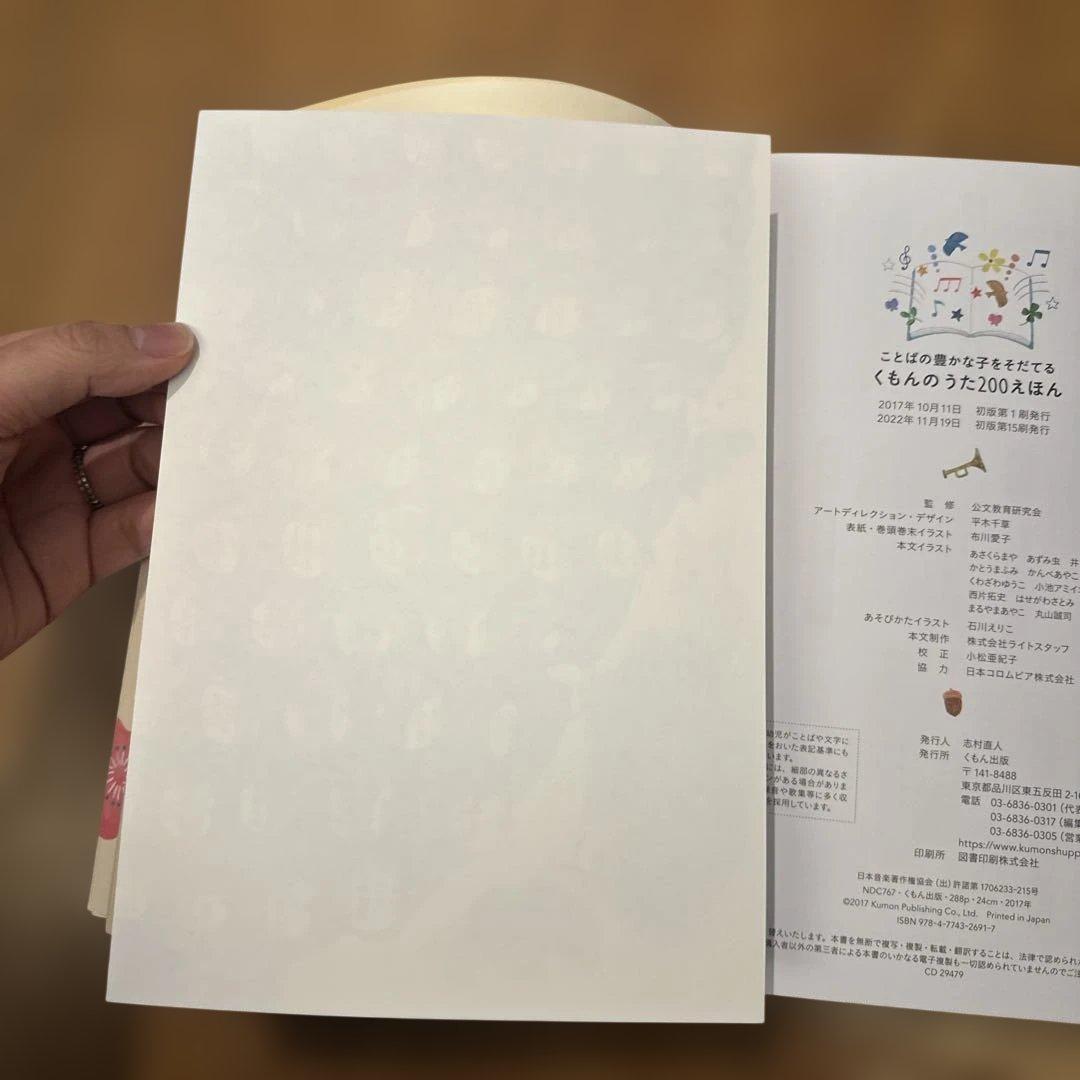 ことばの豊かな子をそだてる
くもんのうた200えほん
2017年10月11日 初版第1刷発行
2022年11月19日 初版第15刷発行
監 修 公文教育研究会
アートディレクション・デザイン 平木千草
表紙・巻頭巻末イラスト 布川愛子
本文イラスト あさくらまや あずみ虫 井
かとうまふみ かんべあやこ
くわざわゆうこ 小池アミイ
西片拓史 はせがわさとみ
まるやまあやこ 丸山誠司
あそびかたイラスト 石川えりこ
本文制作 株式会社ライトスタッフ
校 正 小松亜紀子
協 力 日本コロムビア株式会社
幼児がことばや文字に
をおいた表記基準にも
います。
には、細部の異なるさ
ンがある場合がありま
録音や歌集等に多く収
を採用しています。
発行人 志村直人
発行所 くもん出版
〒141-8488
東京都品川区東五反田2-10
電話 03-6836-0301（代表
03-6836-0317（編集
03-6836-0305（営業
https://www.kumonshupp
印刷所 図書印刷株式会社
日本音楽著作権協会（出）許諾第1706233-215号
NDC767・くもん出版・288p・24cm・2017年
©2017 Kumon Publishing Co., Ltd. Printed in Japan
ISBN 978-4-7743-2691-7
替えいたします。本書を無断で複写・複製・転載・翻訳することは、法律で認められた
購入者以外の第三者による本書のいかなる電子複製も一切認められていませんのでご注
CD 29479